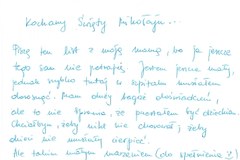 Kochany Święty Mikołaju...
Piszę ten list z moją mamą, bo ja jeszcze
tego sam nie potrafię. Jestem jeszcze mały,
jednak szybko tutaj w szpitalu musiałem
dorosnąć. Mam dużo bagaż doświadczeń,
ale to nie sprawia, że przestałem być dzieckiem.
Chciałbym, żeby nikt nie chorował, żeby
dzieci nie musiały cierpieć.
Ale takim małym marzeniem (do spełnienia?)